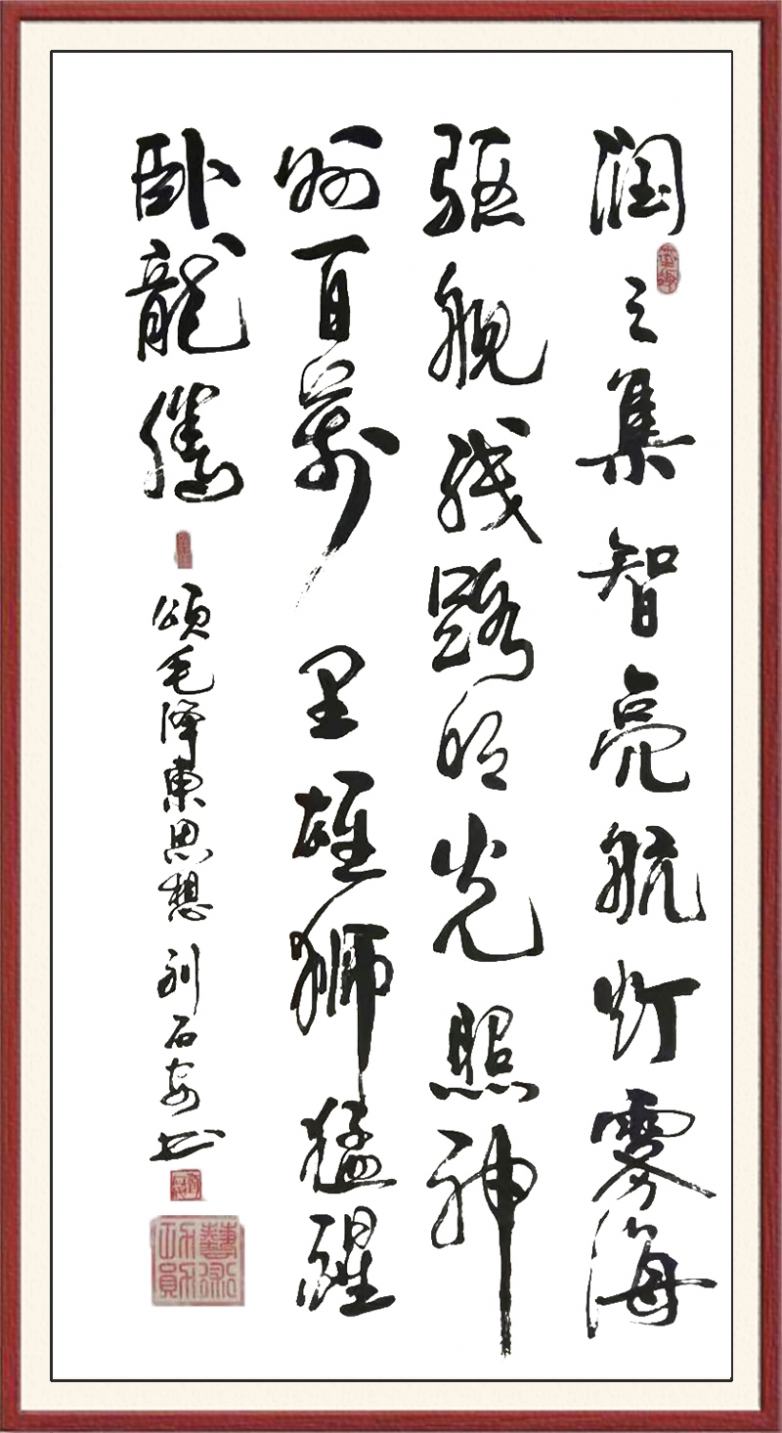 润之集智亮航灯雾海
驱舰线路明光照神
州百万里雄狮猛醒
卧龍腾
颂毛泽東思想 刘石安书